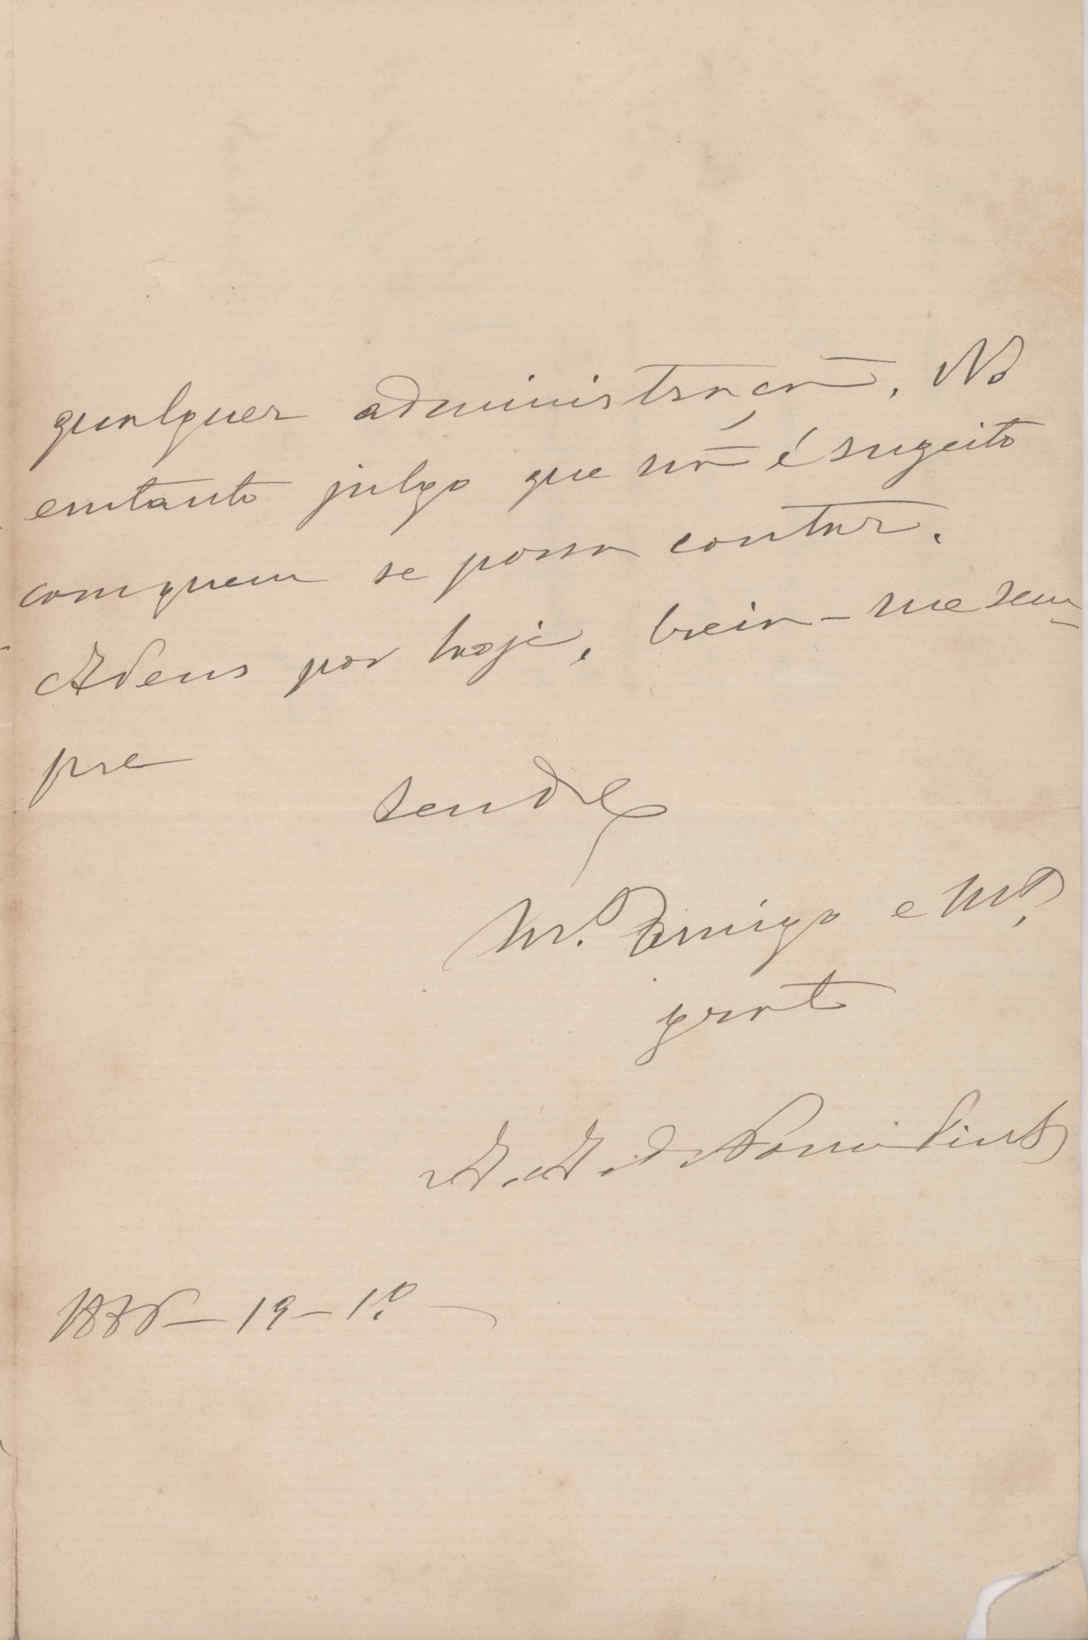 qualquer administração. No
emtanto julgo que não é sugeito
com quem se possa contar.
Adeus por hoje, creia-me sem-
pre
sendo
Mº. Amigo e Mtº.
grato
A. A. de Pinto
19-1º